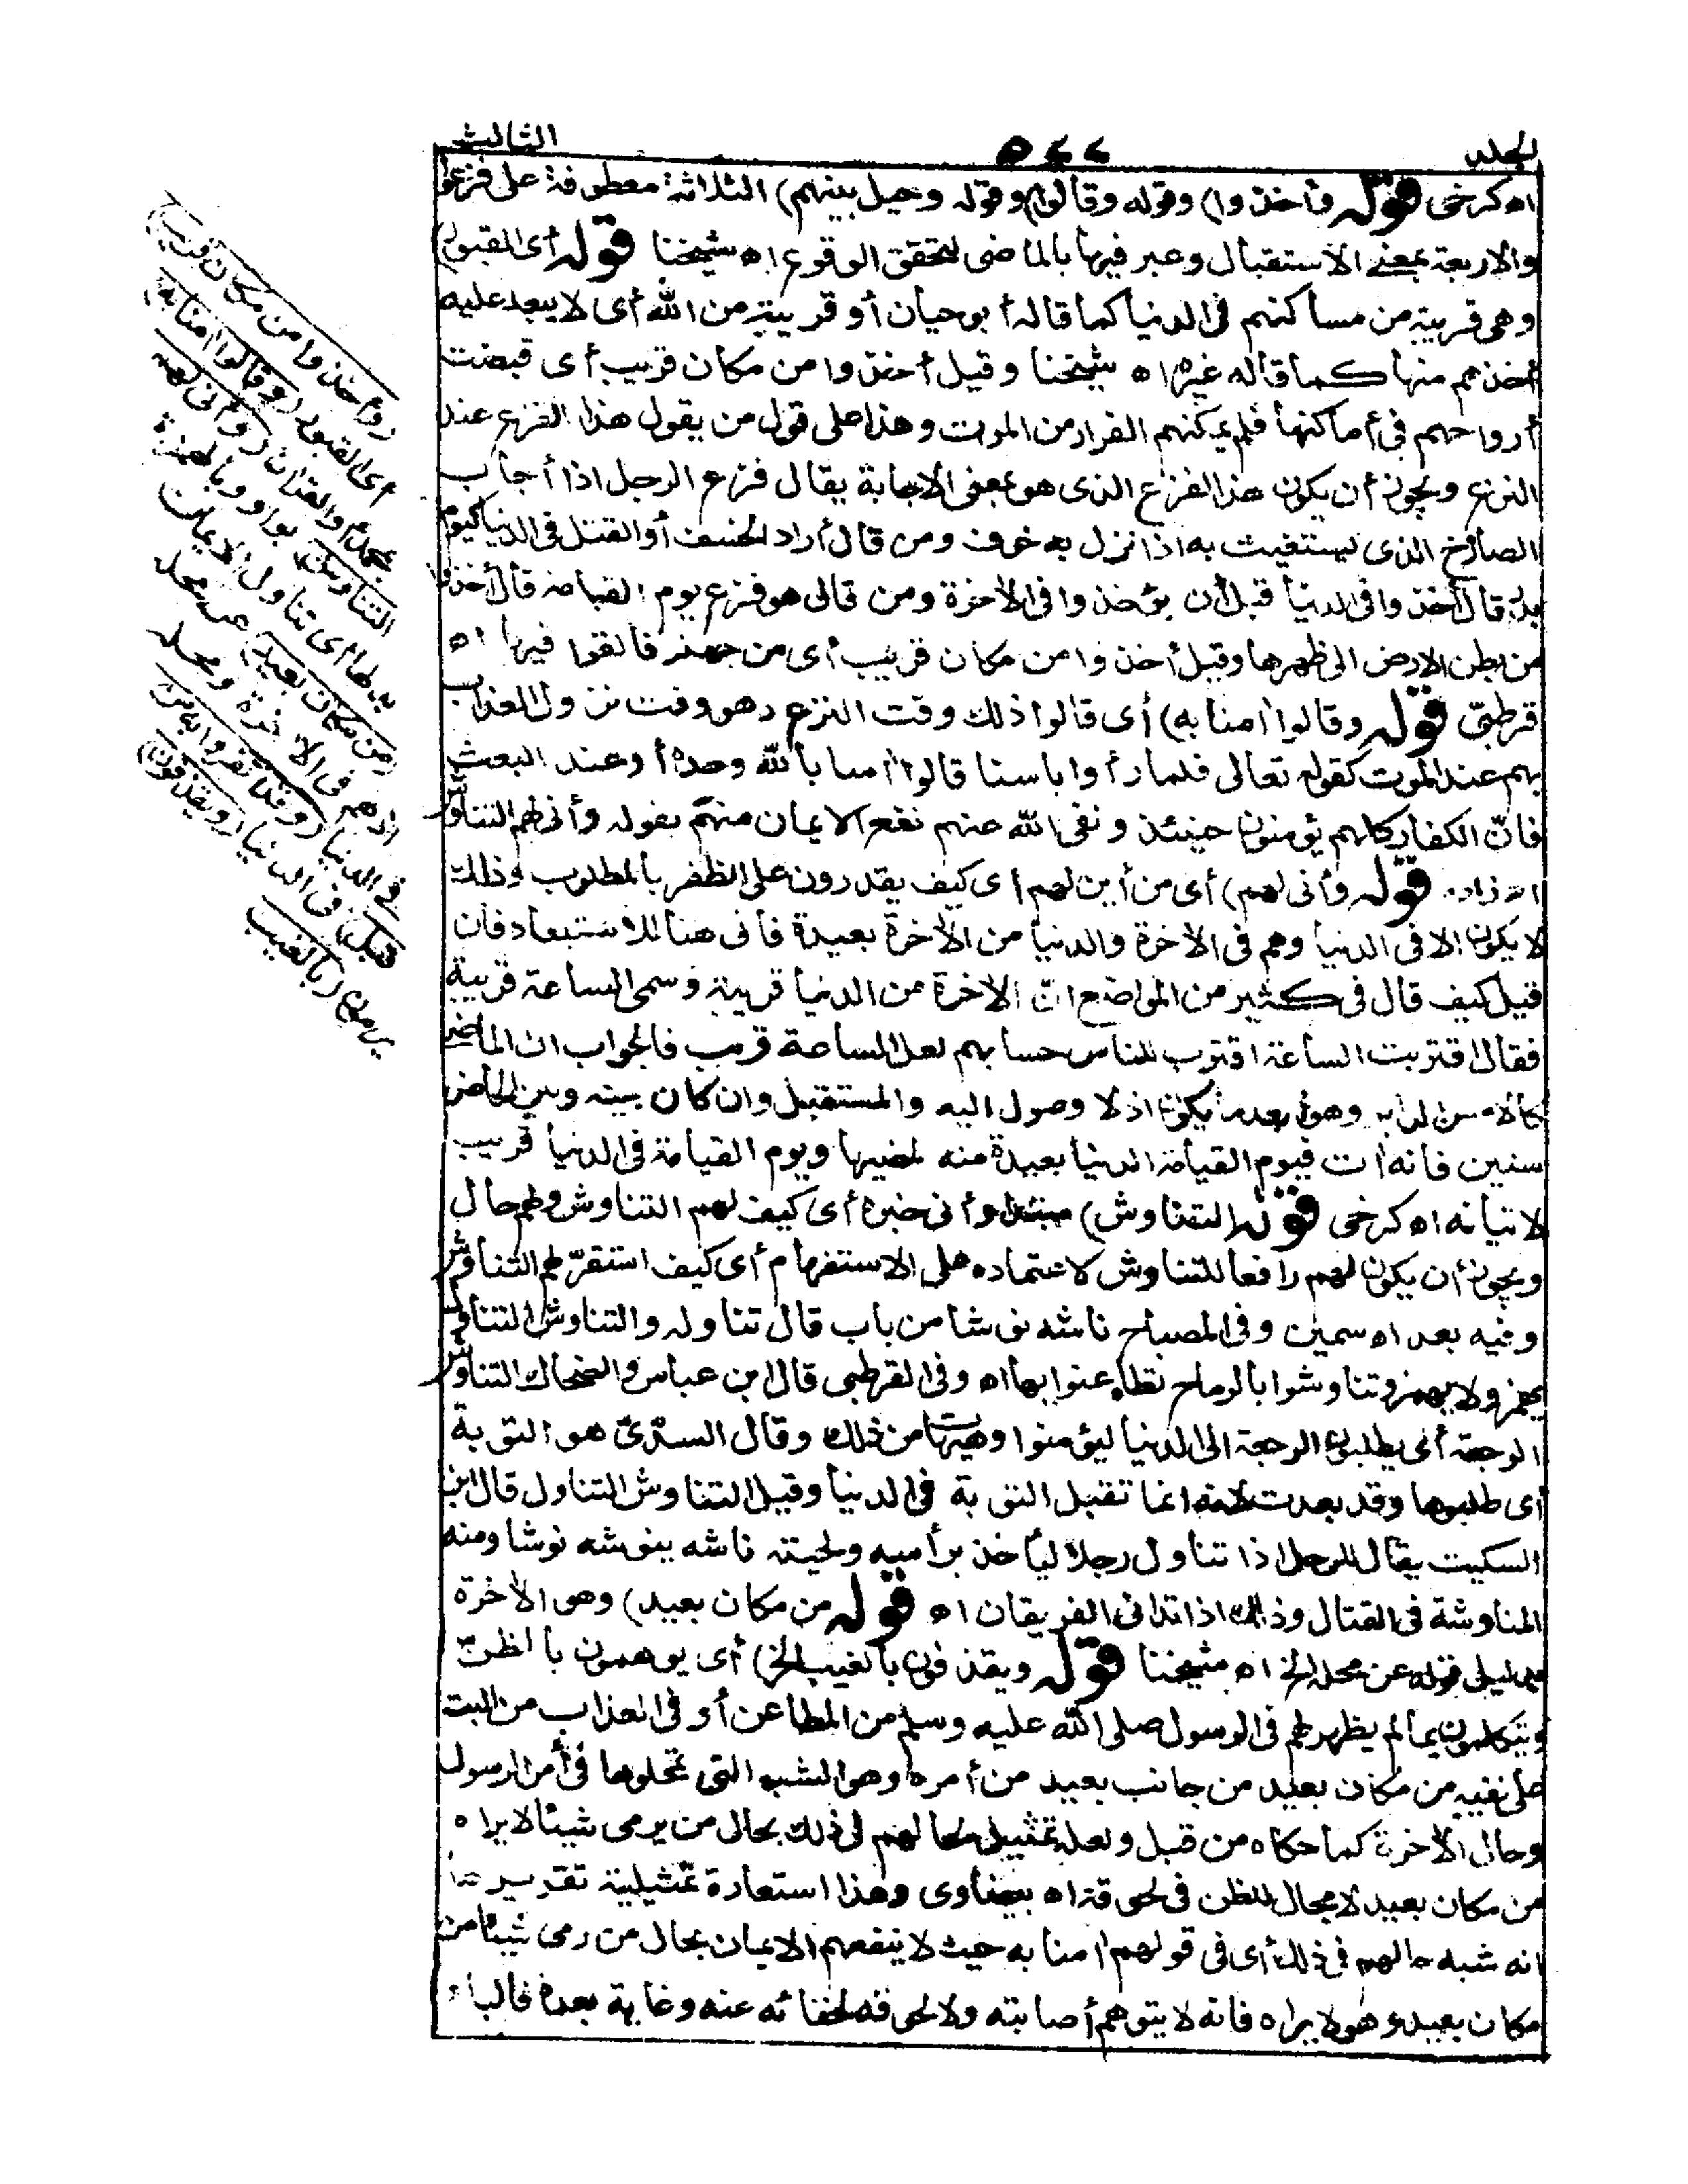 المجلد ٥٤٤ الثالث
اه كرخى قوله وأخذوا) وقوله وقالوا) وقوله وحيل بينهم) الثلاثة معطوفة على فزعوا
والاربعة بمعنى الاستقبال وعبر فيها بالماضى لتحقق الوقوع اه شيخنا قوله أى القبور)
وهى قريبة من مساكنهم فى الدنيا كما قاله أبو حيان أو قريبة من الله أى لا يبعد عليه
أخذهم منها كما قاله غيره اه شيخنا وقيل أخذوا من مكان قريب أى قبضت
أرواحهم فى أماكنها فلم يمكنهم الفرار من الموت وهذا على قول من يقول هذا الفزع عند
النزع ويجوز أن يكون هذا الفزع الذى هو بمعنى الاجابة يقال فزع الرجل اذا أجاب
الصارخ الذى يستغيث به اذا نزل به خوف ومن قال أراد الخسف أو القتل فى الدنيا كيوم
بدر قال أخذوا فى الدنيا قبل أن يؤخذوا فى الآخرة ومن قال هو فزع يوم القيامة قال أخذوا
من بطن الارض الى ظهرها وقيل أخذوا من مكان قريب أى من جهنم فألقوا فيها اه
قرطبىّ قوله وقالوا آمنا به) أى قالوا ذلك وقت النزع وهو وقت نزول العذاب
بهم عند الموت كقوله تعالى فلما رأوا بأسنا قالوا آمنا بالله وحده أو عند البعث
فانّ الكفار كلهم يؤمنون حينئذ ونفى الله عنهم نفع الايمان منهم بقوله وأنى لهم التناوش
اه زاده قوله وأنى لهم) أى من أين لهم أى كيف يقدرون على الظفر بالمطلوب وذلك
لا يكون الا فى الدنيا وهم فى الآخرة والدنيا من الآخرة بعيدة فأنى هنا للاستبعاد فان
قيل كيف قال فى كثير من المواضع انّ الآخرة من الدنيا قريبة وسمى الساعة قريبة
فقال اقتربت الساعة اقترب للناس حسابهم لعل الساعة قريب فالجواب ان الماضى
وهو أبعد ما يكون اذ لا وصول اليه والمستقبل وان كان بينه وبين الحاضر
سنين فانه آت فيوم القيامة الدنيا بعيدة منه لمضيها ويوم القيامة فى الدنيا قريب
لاتيانه اه كرخى قوله التناوش) مبتدأ وأنى خبره أى كيف لهم التناوش ولهم حال
ويجوز أن يكون لهم رافعا للتناوش لاعتماده على الاستفهام أى كيف استقرّ لهم التناوش
وفيه بعد اه سمين وفى المصباح ناشه نوشا من باب قال تناوله والتناوش التناول
يهمز ولا يهمز وتناوشوا بالرماح تطاعنوا بها اه وفى القرطبى قال ابن عباس والضحاك التناوش
الرجعة أى يطلبون الرجعة الى الدنيا ليؤمنوا وهيهات من ذلك وقال السدّىّ هو التوبة
أى طلبوها وقد بعدت لانه انما تقبل التوبة فى الدنيا وقيل التناوش التناول قال ابن
السكيت يقال للرجل اذا تناول رجلا ليأخذ برأسه ولحيته ناشه ينوشه نوشا ومنه
المناوشة فى القتال وذلك اذا تدانى الفريقان اه قوله من مكان بعيد) وهو الآخرة
قوله عن محله الخ اه شيخنا قوله ويقذفون بالغيب الخ) أى يوهمون بالظنّ
ويتكلمون بما لم يظهر لهم فى الرسول صلى الله عليه وسلم من المطاعن أو فى العذاب من البت
على نفيه من مكان بعيد من جانب بعيد من أمره وهو الشبه التى تمحلوها فى أمر الرسول
وحال الآخرة كما حكاه من قبل ولعله تمثيل لحالهم فى ذلك بحال من يرمى شيئا لا يراه
من مكان بعيد لا مجال للظن فى لحوقه اه بيضاوى وهذا استعارة تمثيلية تقريرها
انه شبه حالهم فى ذلك أى فى قولهم آمنا به حيث لا ينفعهم الايمان بحال من رمى شيئا من
مكان بعيد وهو لا يراه فانه لا يتوهم أصابته ولا لحوقه لخفائه عنه وغاية بعده فالباء
(وأخذوا من مكان قريب)
أى القبور (وقالوا آمنا به)
بمحمد أو القرآن (وأنى لهم
التناوش) بواو وبالهمزة
بدلها أى تناول الايمان
(من مكان بعيد) عن محله
اذ هم فى الآخرة ومحله
فى الدنيا (وقد كفروا به من
قبل) فى الدنيا (ويقذفون)
يرمون (بالغيب